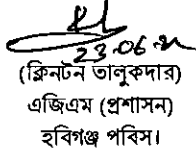 23.06.২১
(ক্লিনটন তালুকদার)
এজিএম (প্রশাসন)
হবিগঞ্জ পবিস।